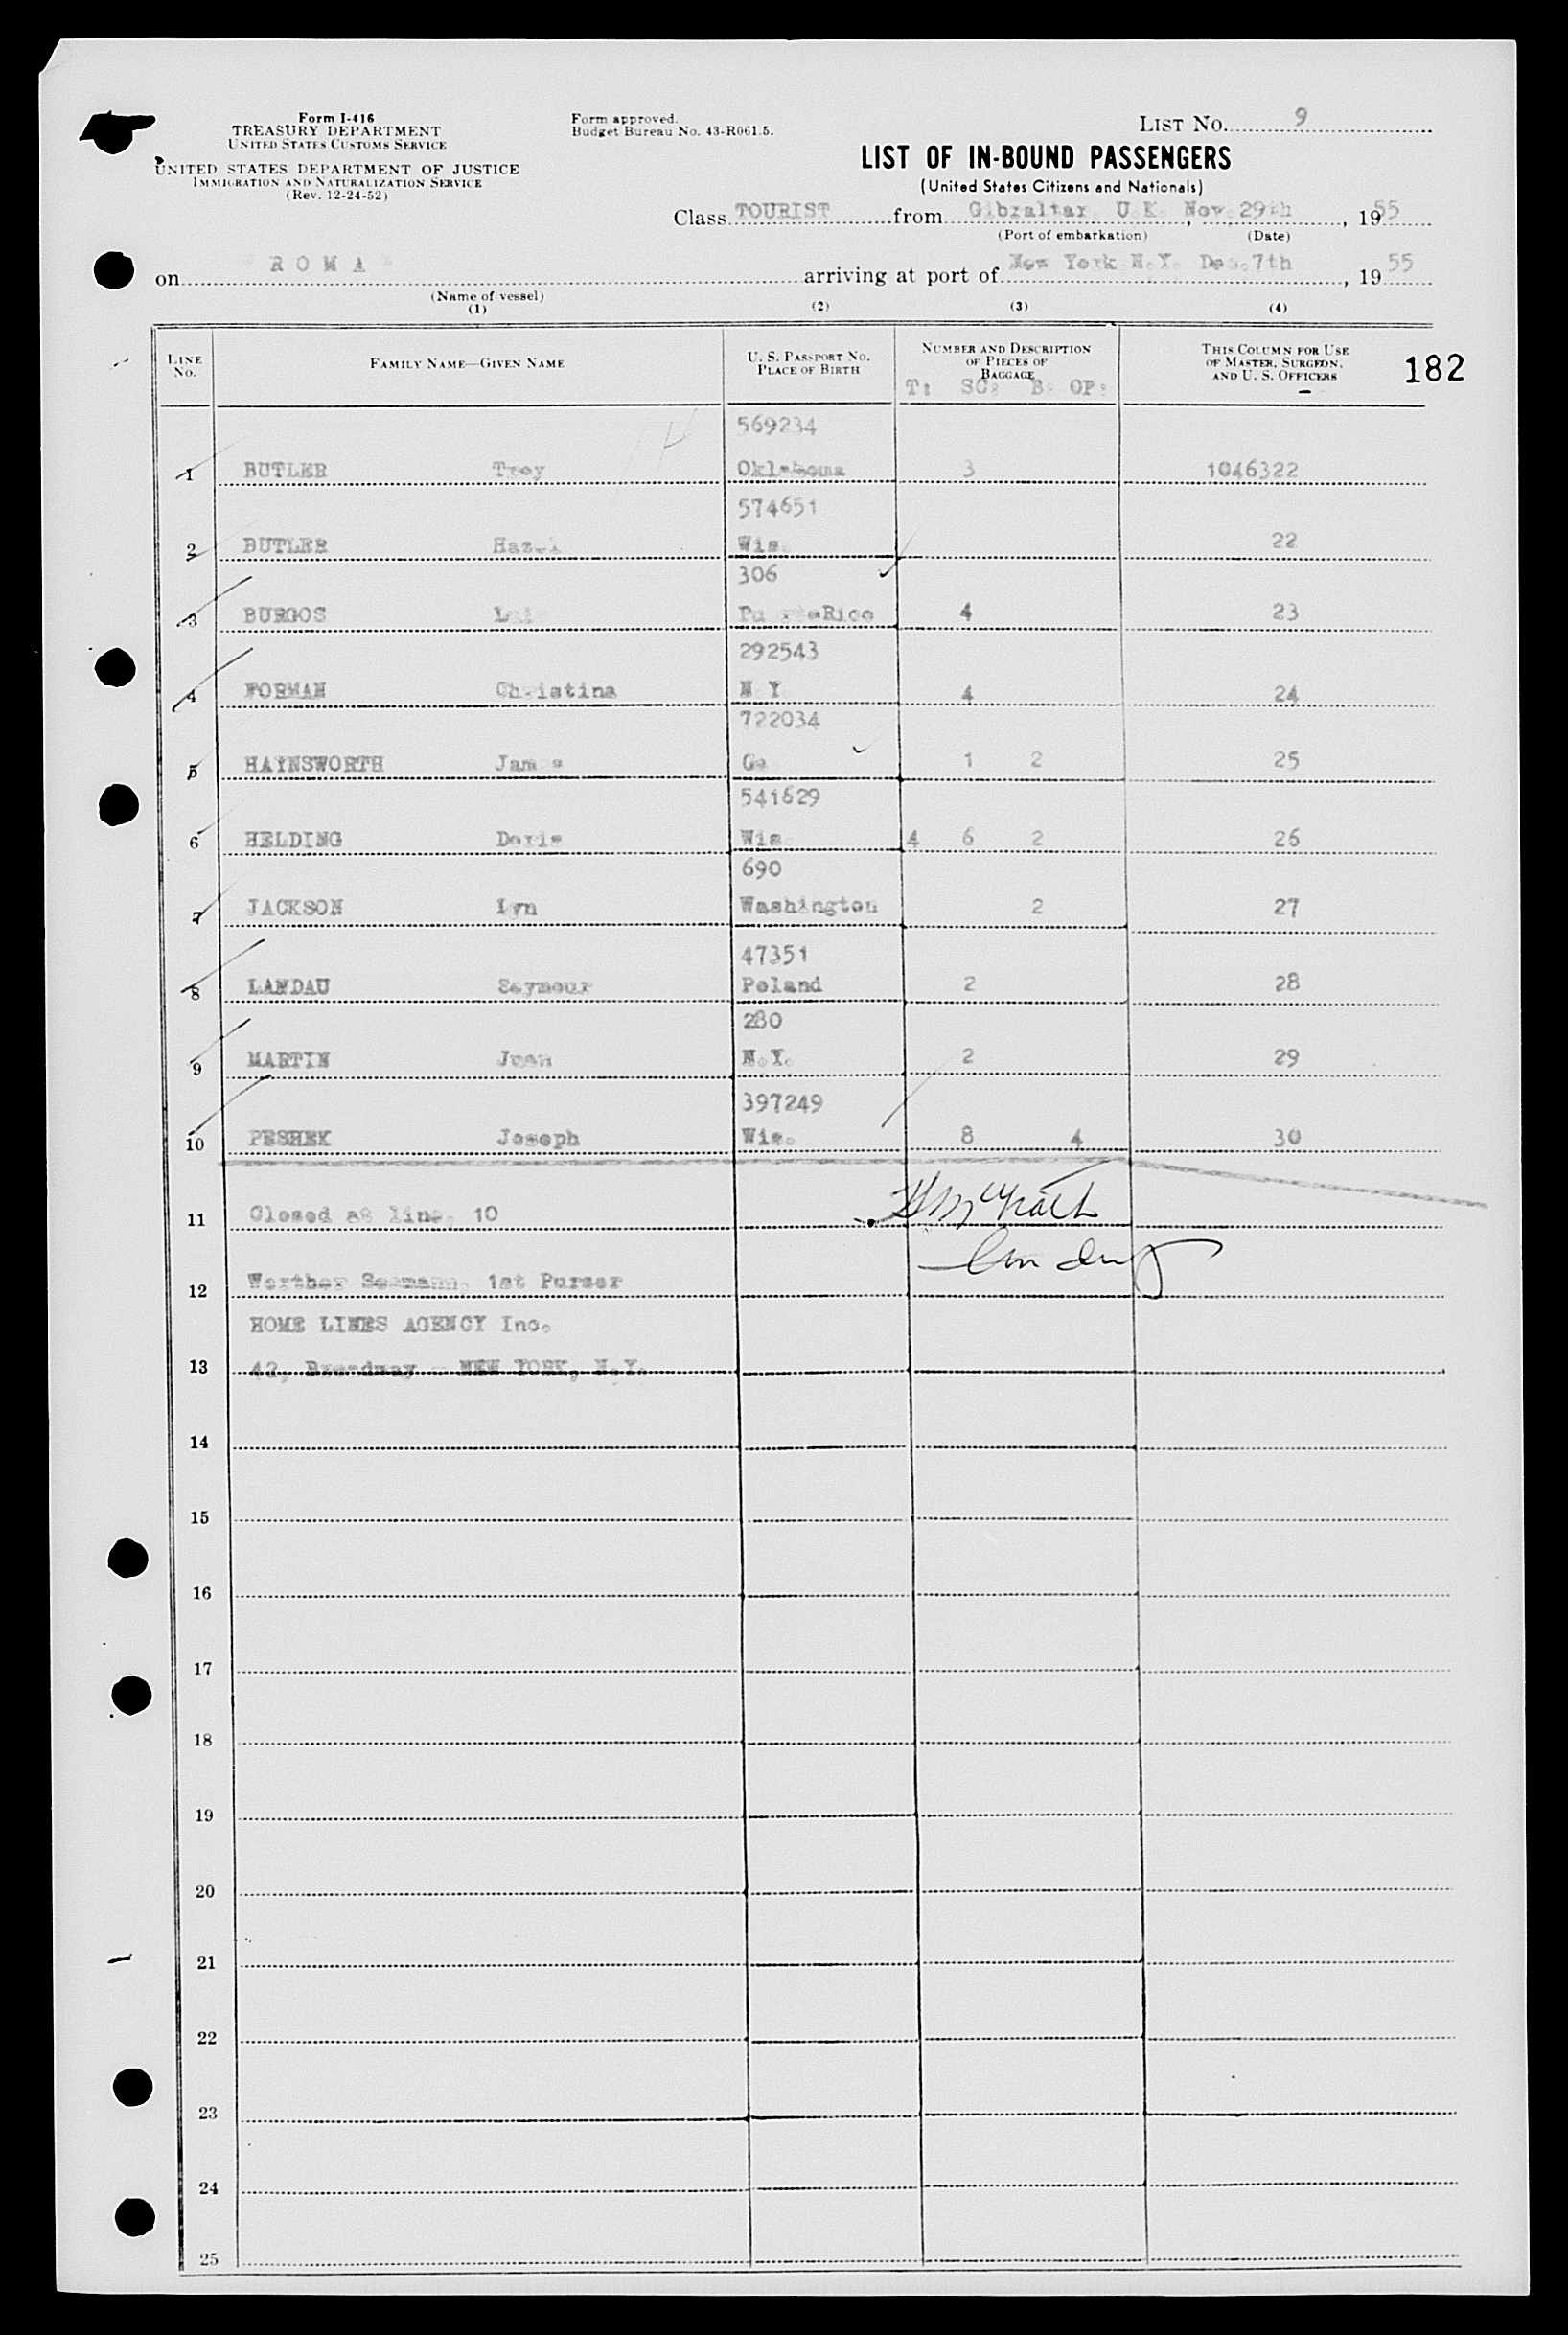 Form I-416
TREASURY DEPARTMENT
UNITED STATES CUSTOMS SERVICE
UNITED STATES DEPARTMENT OF JUSTICE
IMMIGRATION AND NATURALIZATION SERVICE
(Rev. 12-24-52)
Form approved.
Budget Bureau No. 43-R061.5.
LIST NO. 9
LIST OF IN-BOUND PASSENGERS
(United States Citizens and Nationals)
Class TOURIST from Gibraltar, U.K. Nov.29th, 1955
(Port of embarkation) (Date)
on ROMA arriving at port of New York N.Y. Dec.7th, 1955
(Name of vessel)
(1) (2) (3) (4)
LINE NO. FAMILY NAME—GIVEN NAME U. S. PASSPORT NO. PLACE OF BIRTH NUMBER AND DESCRIPTION OF PIECES OF BAGGAGE THIS COLUMN FOR USE OF MASTER, SURGEON, AND U. S. OFFICERS 182
T: SC: B: OP:
569234
1 BUTLER Troy Oklahoma 3 1046322
574651
2 BUTLER Hazel Wis. 22
306
3 BURGOS PuertoRico 4 23
292543
4 FORMAN Christina N.Y. 4 24
722034
5 HAYNSWORTH James Ga 1 2 25
541629
6 HELDING Doris Wis. 4 6 2 26
690
7 JACKSON Lyn Washington 2 27
47351
8 LANDAU Seymour Poland 2 28
280
9 MARTIN Joan N.Y. 2 29
397249
10 PESHEK Joseph Wis. 8 4 30
11 Closed at line, 10
12 Werther Seemann, 1st Purser
HOME LINES AGENCY Inc.
13 42, Broadway - NEW YORK, N.Y.
14
15
16
17
18
19
20
21
22
23
24
25